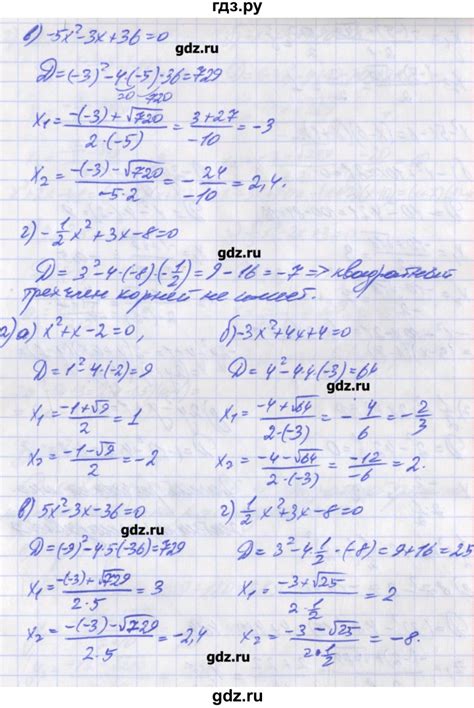 гдз.ру
в) -5x²-3x+36=0
gdz.ru
D=(-3)²-4(-5)·36=729
20 720
x₁= -(-3)+√720 / 2·(-5) = 3+27 / -10 = -3
gdz.ru
x₂= -(-3)-√720 / -5·2 = - 24 / -10 = 2,4.
gdz.ru
г) -1/2x²+3x-8=0
gdz.ru
D=3²-4·(-8)·(-1/2)=9-16=-7 => квадратный
трехчлен корней не имеет.
gdz.ru
2) а) x²+x-2=0,
D=1²-4·(-2)=9
x₁= -1+√9 / 2 = 1
x₂= -1-√9 / 2 = -2
б) -3x²+4x+4=0
gdz.ru
D=4²-4·4(-3)=64
x₁= -4+√64 / 2·(-3) = - 4/6 = - 2/3
gdz.ru
x₂= -4-√64 / 2·(-3) = -12 / -6 = 2.
gdz.ru
в) 5x²-3x-36=0
gdz.ru
D=(-9)²-4·5(-36)=729
x₁= -(-3)+√729 / 2·5 = 3
gdz.ru
x₂= -(-3)-√729 / 2·5 = -2,4
gdz.ru
г) 1/2x²+3x-8=0
gdz.ru
D=3²-4·1/2·(-8)=9+16=25
x₁= -3+√25 / 2·1/2 = 2
gdz.ru
x₂= -3-√25 / 2·1/2 = -8.
gdz.ru
gdz.ru